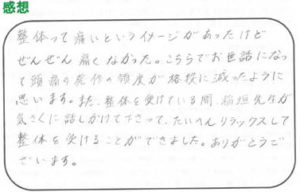 感想
整体って痛いというイメージがあったけど
ぜんぜん痛くなかった。こちらでお世話になっ
て頭痛の発作の頻度が格段に減ったように
思います。また、整体を受けている間、稲垣先生が
気さくに話しかけて下さって、たいへんリラックスして
整体を受けることができました。ありがとうご
ざいます。